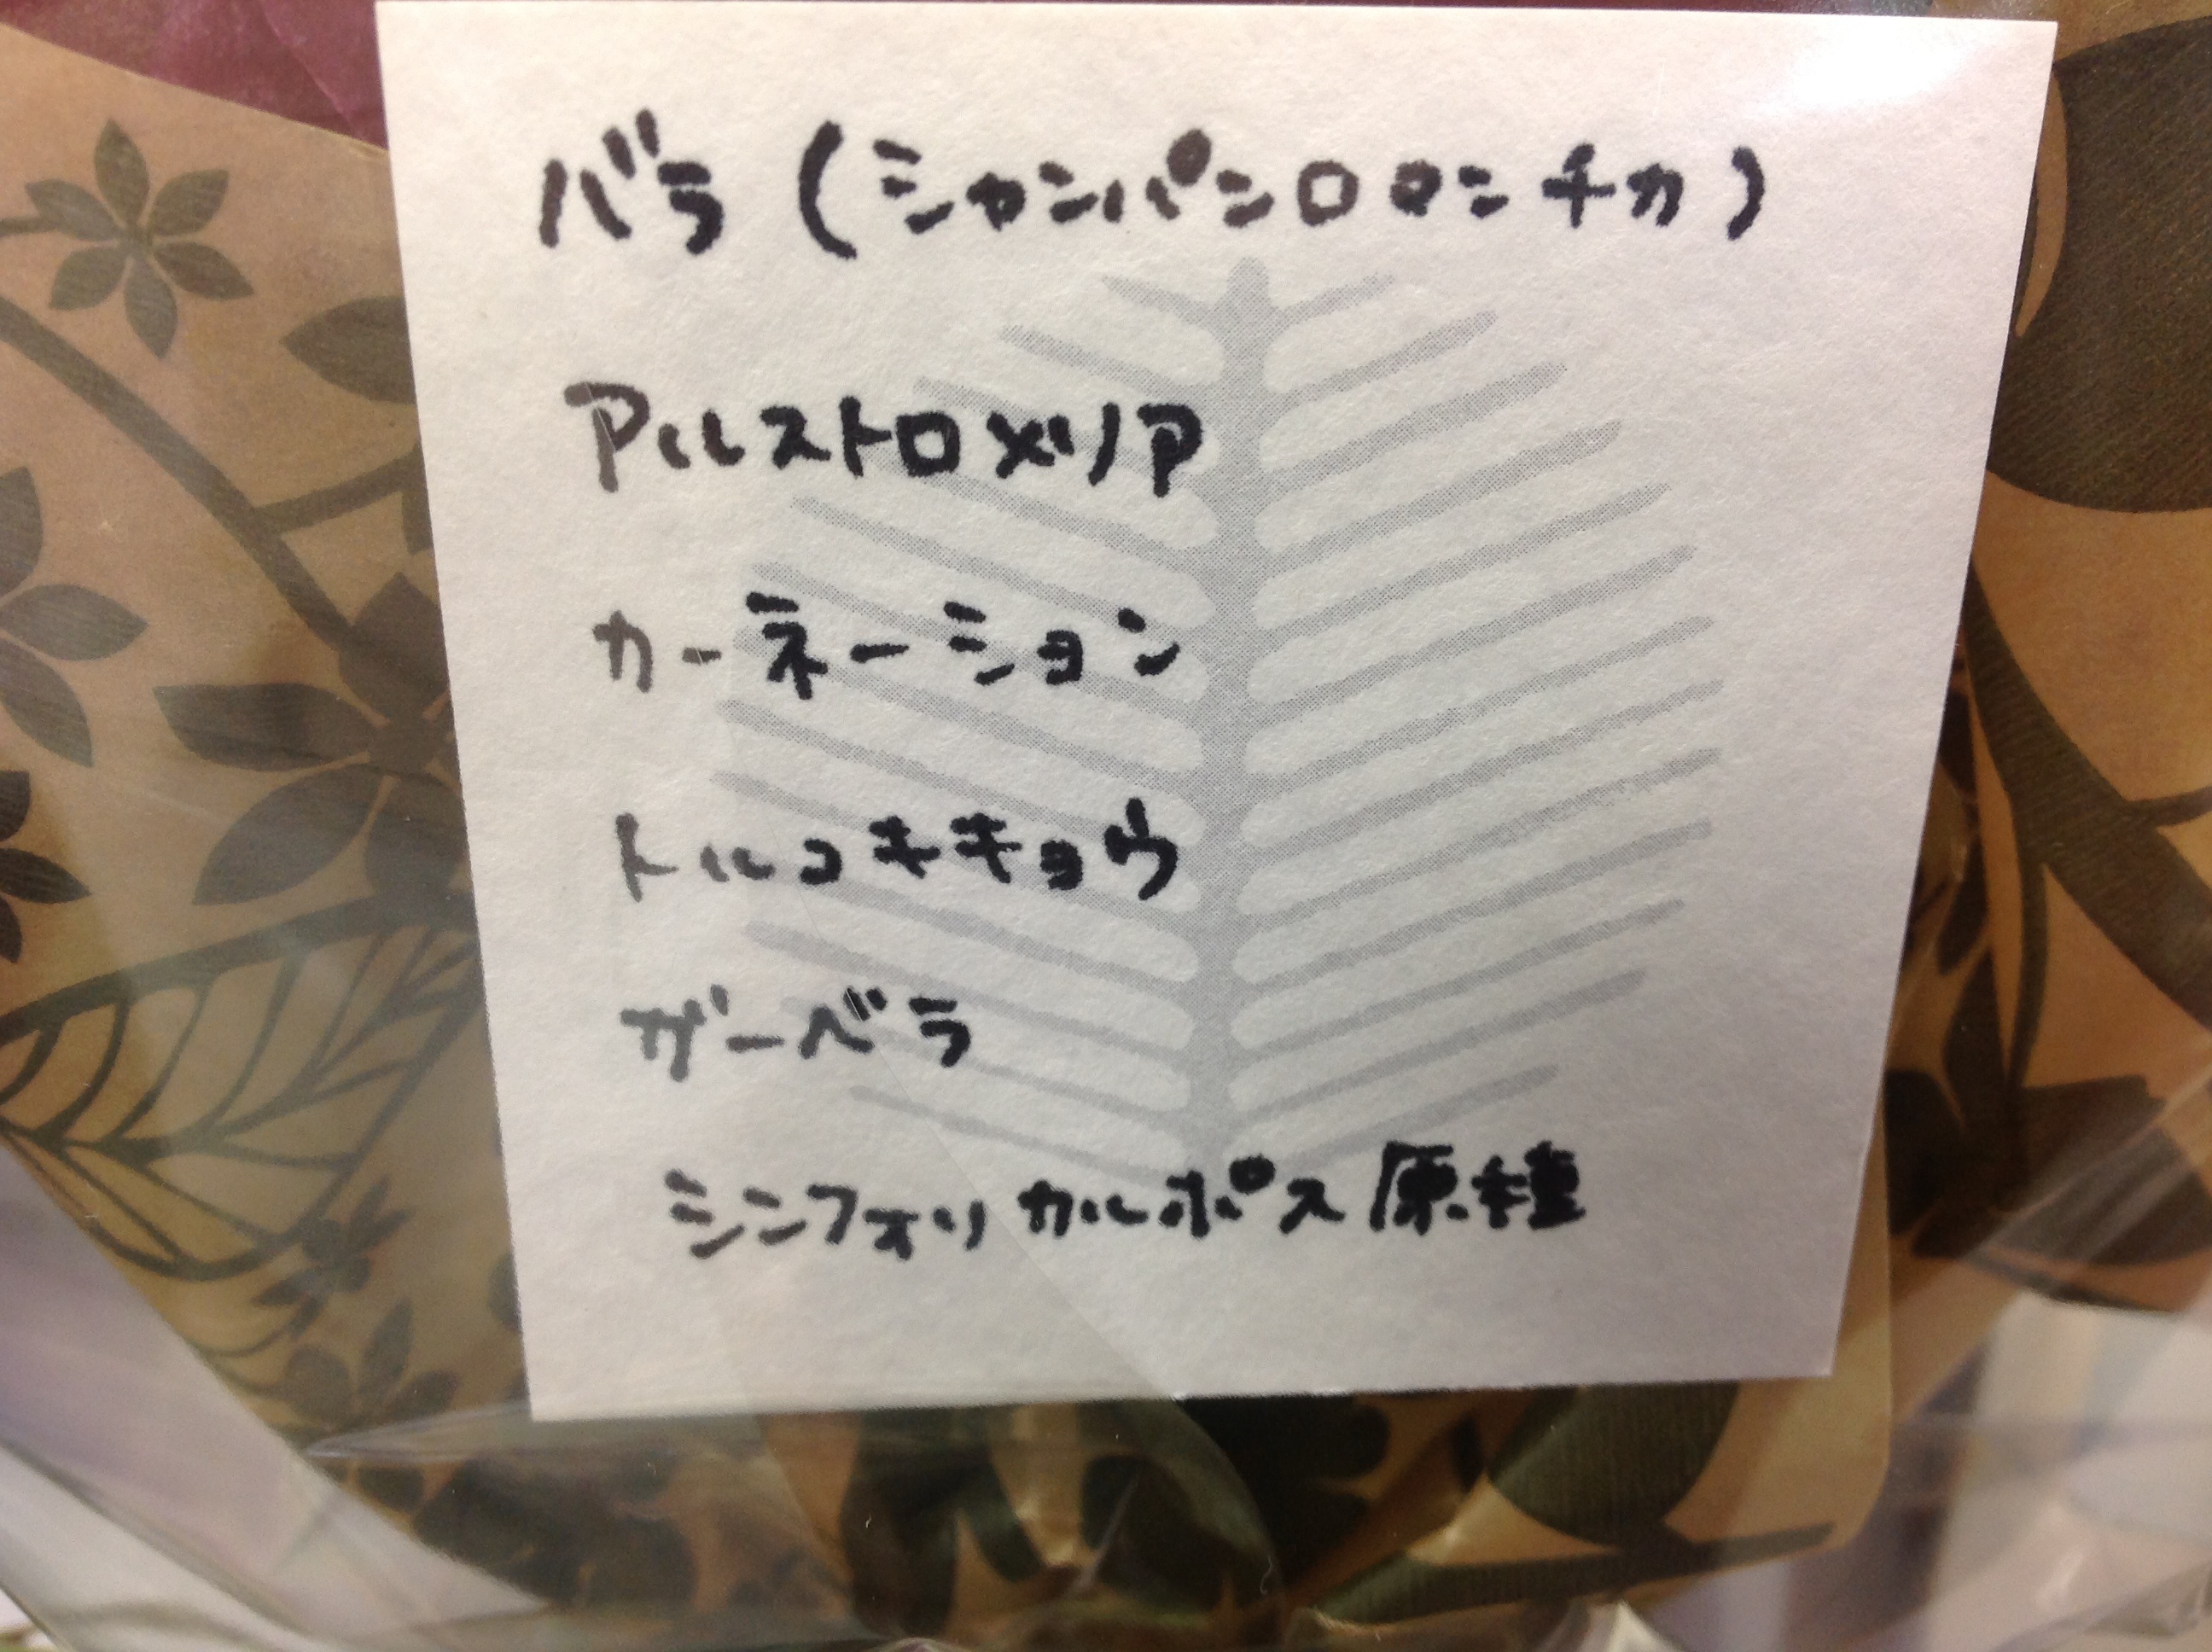 バラ(シャンパンロマンチカ)
アルストロメリア
カーネーション
トルコキキョウ
ガーベラ
シンフォリカルポス原種